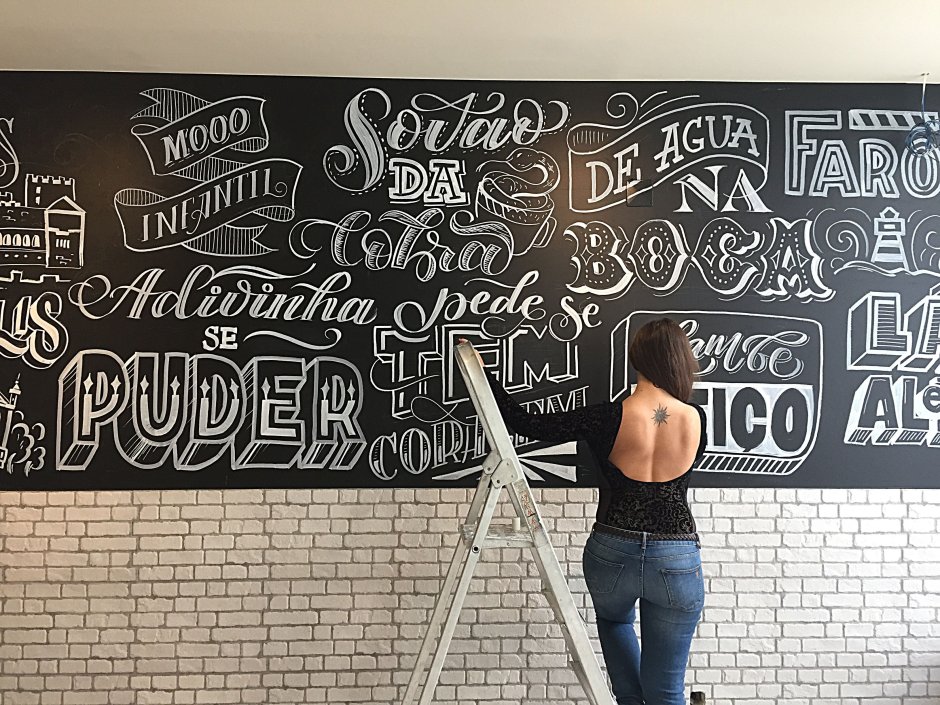 MOOO
INFANTIL
Sovaco
DA
Cobra
DE AGUA
NA
BOCA
FARO
Adivinha
SE
PUDER
pede
se
TEM
CORAGEM
Lambe